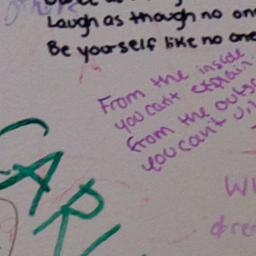 Laugh as though no on
Be yourself like no one
From the inside
you can't explain.
From the outs
you can't
W
drea
CARL